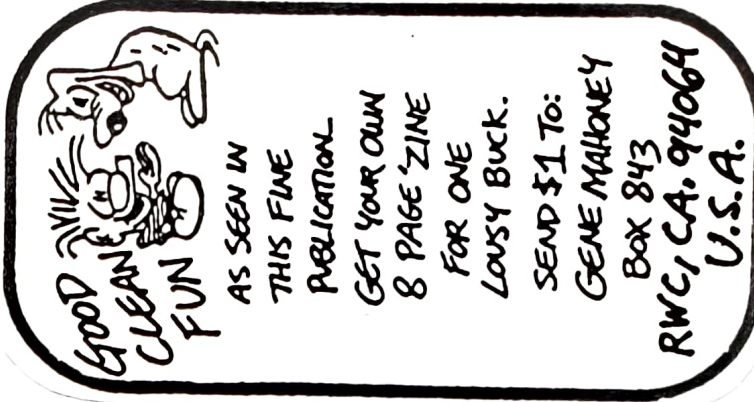 GOOD
CLEAN
FUN
AS SEEN IN
THIS FINE
PUBLICATION.
GET YOUR OWN
8 PAGE 'ZINE
FOR ONE
LOUSY BUCK.
SEND $1 TO:
GENE MAHONEY
BOX 843
RWC, CA. 94064
U.S.A.